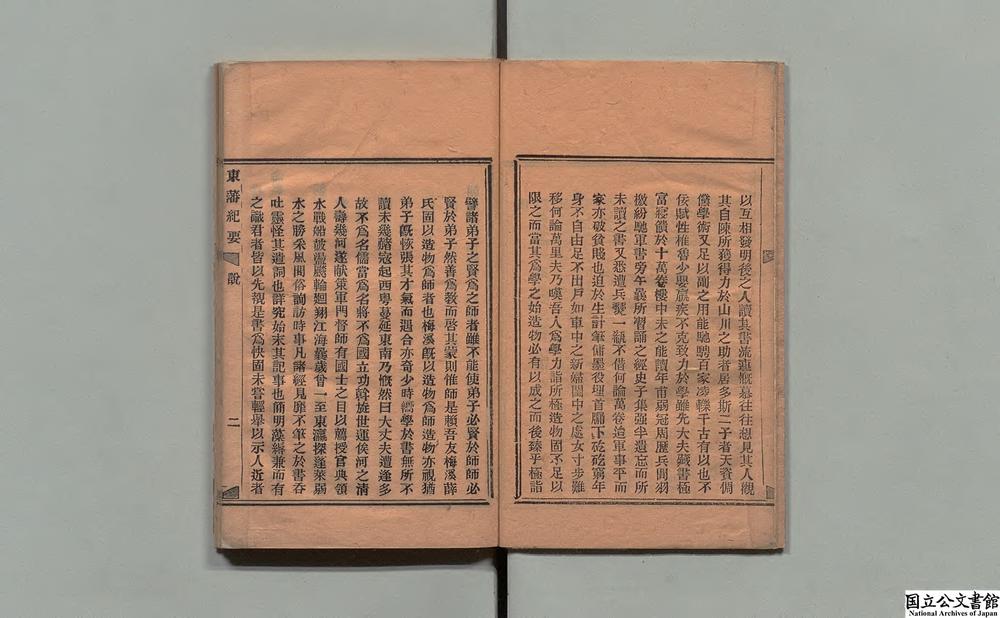 以互相發明後之人讀其書流連慨慕往往想見其人觀
其自陳所獲得力於山川之助者居多斯二子者天資倜
儻學術又足以副之用能馳騁百家凌轢千古有以也不
佞賦性椎魯少嬰羸疾不克致力於學雖先大夫藏書極
富寢饋於十萬卷樓中未之能讀年甫弱冠周歷兵間羽
檄紛馳軍書旁午曩所習誦之經史子集強半遺忘而所
未讀之書又悉遭兵燹一瓻不借何論萬卷迨軍事平而
家亦破貧賤也迫於生計筆傭墨役埋首牖下矻矻窮年
身不自由足不出戶如車中之新婦閨中之處女寸步難
移何論萬里夫乃嘆吾人爲學力詣所極造物固不足以
限之而當其爲學之始造物必有以成之而後臻乎極詣
譬諸弟子之賢爲之師者雖不能使弟子必賢於師師必
賢於弟子然善爲教而啓其蒙則惟師是賴吾友梅溪薛
氏固以造物爲師者也梅溪既以造物爲師造物亦視猶
弟子既恢張其才氣而遇合亦奇少時嗜學於書無所不
讀未幾赭寇起西粵蔓延東南乃慨然曰大丈夫遭逢多
故不爲名儒當爲名將不爲國立功斡旋世運俟河之清
人壽幾何遂献策軍門督師有國士之目以薦授官典領
水戰船破濤颿輪迴翔江海曩歲曾一至東瀛探蓬萊弱
水之勝采風問俗詢訪時事凡諸經見靡不筆之於書吞
吐靈怪其遣詞也詳究始末其記事也簡明藻繢兼而有
之識君者皆以先覩是書爲快固未嘗輕舉以示人近者
東藩紀要
說
二
国立公文書館
National Archives of Japan